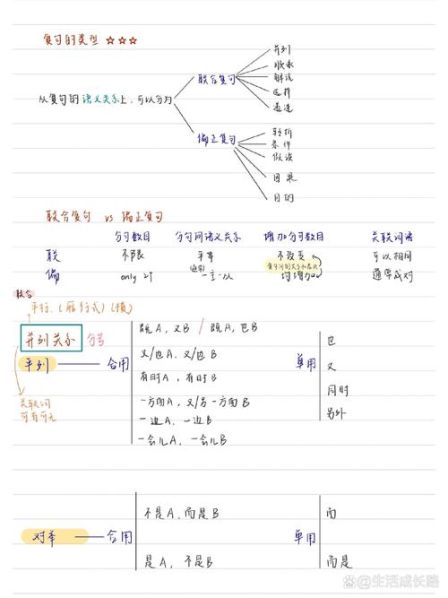 复句的类型 ☆☆☆
并列
顺承
联合复句 解说
选择
递进
从复句的语义关系上，可以分为
转折
偏正复句 条件
假设
因果
目的
联合复句 vs 偏正复句
分句数目 分句间语义关系 增加分句数目 关联词语
联 不限 平等 不改变 可以相同
偏 only 2个 一主一从 通常成对
联合
平行（雁行式）（横）
并列关系 分号 既A，又B / 既A，也B 也
平列 合用 又/也A，又/也B 单用 又
有时A，有时B 同时
一方面A，又/另一方面B 另外
关联词
可有可无
一边A，一边B
一会儿A，一会儿B
不是A，而是B 而
对举 合用 单用
是A，不是B 而是
@生活成长路